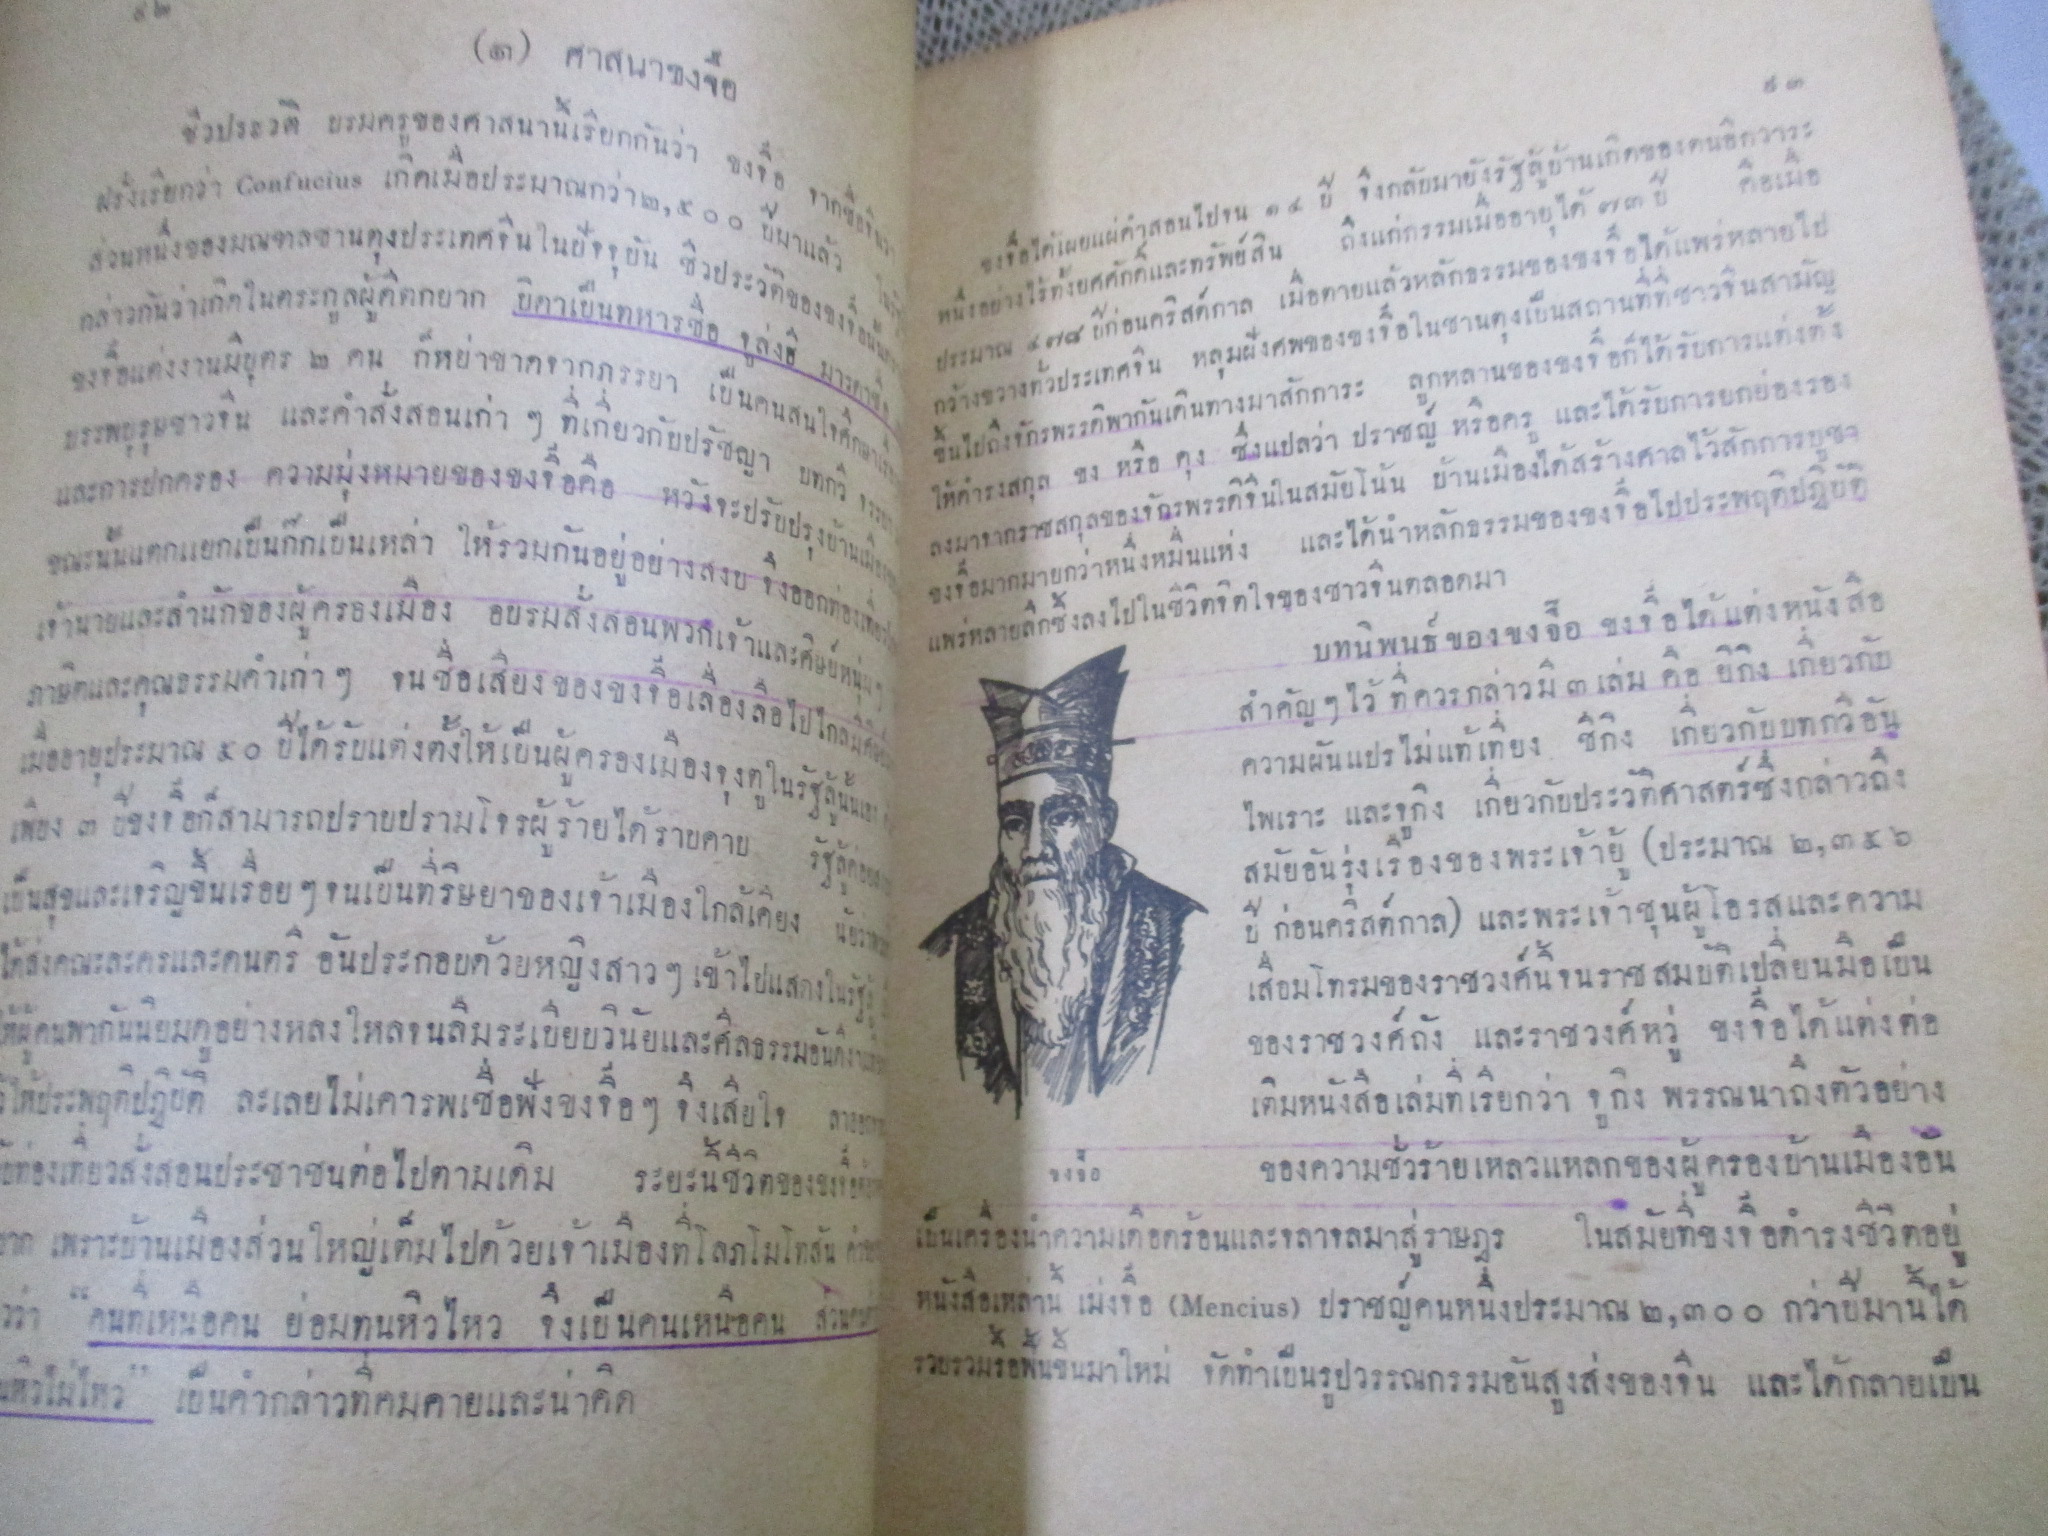 ๘๒
(๓) ศาสนาขงจื๊อ
ชีวประวัติ บรมครูของศาสนานี้เรียกกันว่า ขงจื๊อ จากชื่อจีนว่า
ฝรั่งเรียกว่า Confucius เกิดเมื่อประมาณกว่า ๒,๕๐๐ ปีมาแล้ว
ส่วนหนึ่งของมณฑลชานตุงประเทศจีนในปัจจุบัน ชีวประวัติของขงจื๊อนั้น
กล่าวกันว่าเกิดในตระกูลผู้ดีตกยาก บิดาเป็นทหารชื่อ จูล่งฮี มารดาชื่อ
ขงจื๊อแต่งงานมีบุตร ๒ คน ก็หย่าขาดจากภรรยา เป็นคนสนใจศึกษา
บรรพบุรุษชาวจีน และคำสั่งสอนเก่า ๆ ที่เกี่ยวกับปรัชญา บทกวี จรรยา
และการปกครอง ความมุ่งหมายของขงจื๊อคือ หวังจะปรับปรุงบ้านเมือง
ขณะนั้นแตกแยกเป็นก๊กเป็นเหล่า ให้รวมกันอยู่อย่างสงบ จึงออกท่องเที่ยว
เจ้านายและสำนักของผู้ครองเมือง อบรมสั่งสอนพวกเจ้าและศิษย์หนุ่ม ๆ
ภาษิตและคุณธรรมคำเก่า ๆ จนชื่อเสียงของขงจื๊อเลื่องลือไปไกลมีศิษย์
เมื่ออายุประมาณ ๕๐ ปีได้รับแต่งตั้งให้เป็นผู้ครองเมืองจุงตูในรัฐลู้นั้นเอง
เพียง ๓ ปีขงจื๊อก็สามารถปราบปรามโจรผู้ร้ายได้ราบคาบ รัฐลู้ค่อย
เป็นสุขและเจริญขึ้นเรื่อย ๆ จนเป็นที่ริษยาของเจ้าเมืองใกล้เคียง
ได้ส่งคณะละครและดนตรี อันประกอบด้วยหญิงสาว ๆ เข้าไปแสดงในรัฐลู้
ให้ผู้คนพากันนิยมดูอย่างหลงใหลจนลืมระเบียบวินัยและศีลธรรมอันดีงาม
ไว้ให้ประพฤติปฏิบัติ ละเลยไม่เคารพเชื่อฟังขงจื๊อ ๆ จึงเสียใจ ลาออก
ท่องเที่ยวสั่งสอนประชาชนต่อไปตามเดิม ระยะนี้ชีวิตของขงจื๊อ
เพราะบ้านเมืองส่วนใหญ่เต็มไปด้วยเจ้าเมืองที่โลภโมโทสัน
ว่า "คนที่เหนือคน ย่อมทนหิวไหว จึงเป็นคนเหนือคน ส่วนคน
หิวไม่ไหว" เป็นคำกล่าวที่คมคายและน่าคิด
๘๓
ขงจื๊อได้เผยแผ่คำสอนไปจน ๑๔ ปี จึงกลับมายังรัฐลู้บ้านเกิดของตนอีกวาระ
หนึ่งอย่างไร้ทั้งยศศักดิ์และทรัพย์สิน ถึงแก่กรรมเมื่ออายุได้ ๗๓ ปี คือเมื่อ
ประมาณ ๔๗๘ ปีก่อนคริสต์กาล เมื่อตายแล้วหลักธรรมของขงจื๊อได้แพร่หลายไป
กว้างขวางทั่วประเทศจีน หลุมฝังศพของขงจื๊อในชานตุงเป็นสถานที่ที่ชาวจีนสามัญ
ขึ้นไปถึงจักรพรรดิพากันเดินทางมาสักการะ ลูกหลานของขงจื๊อก็ได้รับการแต่งตั้ง
ให้ดำรงสกุล ขง หรือ คุง ซึ่งแปลว่า ปราชญ์ หรือครู และได้รับการยกย่องรอง
ลงมาจากราชสกุลของจักรพรรดิจีนในสมัยโน้น บ้านเมืองได้สร้างศาลไว้สักการบูชา
ขงจื๊อมากมายกว่าหนึ่งหมื่นแห่ง และได้นำหลักธรรมของขงจื๊อไปประพฤติปฏิบัติ
แพร่หลายลึกซึ้งลงไปในชีวิตจิตใจของชาวจีนตลอดมา
บทนิพนธ์ของขงจื๊อ ขงจื๊อได้แต่งหนังสือ
สำคัญ ๆ ไว้ ที่ควรกล่าวมี ๓ เล่ม คือ ยีกิง เกี่ยวกับ
ความผันแปรไม่แท้เที่ยง ชีกิง เกี่ยวกับบทกวีอัน
ไพเราะ และจูกิง เกี่ยวกับประวัติศาสตร์ซึ่งกล่าวถึง
สมัยอันรุ่งเรืองของพระเจ้ายู้ (ประมาณ ๒,๓๕๖
ปี ก่อนคริสต์กาล) และพระเจ้าชุนผู้โอรสและความ
เสื่อมโทรมของราชวงศ์นี้จนราชสมบัติเปลี่ยนมือเป็น
ของราชวงศ์ถัง และราชวงศ์หวู่ ขงจื๊อได้แต่งต่อ
เติมหนังสือเล่มที่เรียกว่า จูกิง พรรณนาถึงตัวอย่าง
ขงจื๊อ
ของความชั่วร้ายเหลวแหลกของผู้ครองบ้านเมืองอัน
เป็นเครื่องนำความเดือดร้อนและจลาจลมาสู่ราษฎร ในสมัยที่ขงจื๊อดำรงชีวิตอยู่
หนังสือเหล่านี้ เม่งจื๊อ (Mencius) ปราชญ์คนหนึ่งประมาณ ๒,๓๐๐ กว่าปีมานี้ได้
รวบรวมรื้อฟื้นขึ้นมาใหม่ จัดทำเป็นรูปวรรณกรรมอันสูงส่งของจีน และได้กลายเป็น